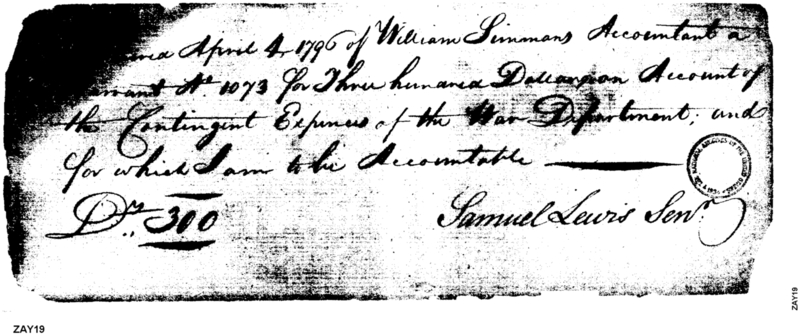 April 4, 1796 of William Simmons Accountant a
No 1073 for Three hundred Dollars on Account of
the Contingent Expences of the War Department; and
for which I am to be Accountable
Drs. 300 Samuel Lewis Senr.
ZAY19
ZAY19